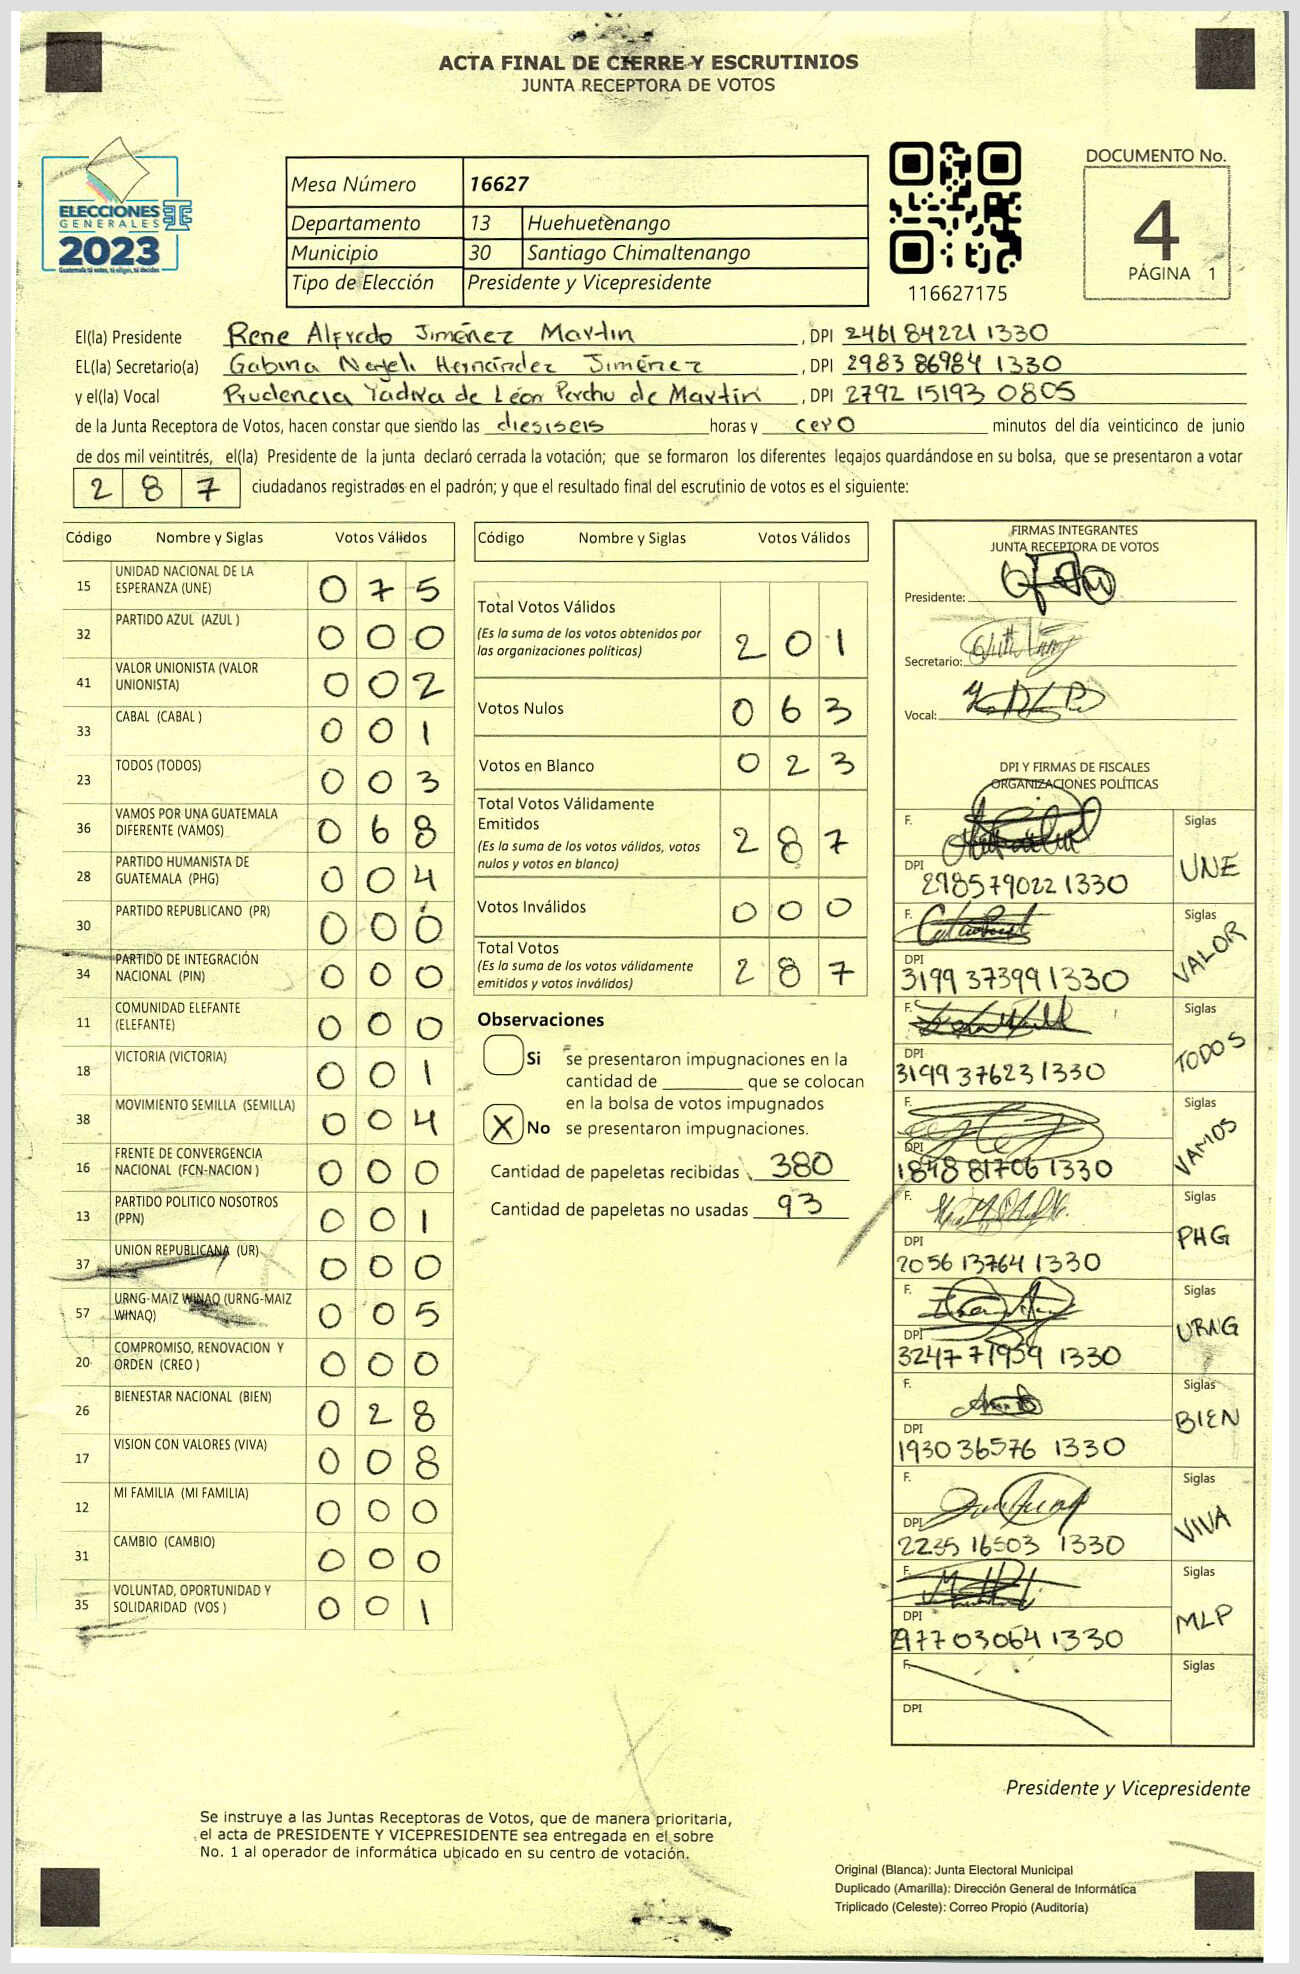 ACTA FINAL DE CIERRE Y ESCRUTINIOS
JUNTA RECEPTORA DE VOTOS
ELECCIONES
GENERALES
2023
Guatemala tú votas, tú eliges, tú decides
Mesa Número 16627
Departamento 13 Huehuetenango
Municipio 30 Santiago Chimaltenango
Tipo de Elección Presidente y Vicepresidente
116627175
DOCUMENTO No.
4
PÁGINA 1
El(la) Presidente Rene Alfredo Jiménez Martin , DPI 2461 84221 1330
EL(la) Secretario(a) Gabina Nayeli Hernández Jiménez , DPI 2983 86984 1330
y el(la) Vocal Prudencia Yadira de León Perchu de Martin , DPI 2792 15193 0805
de la Junta Receptora de Votos, hacen constar que siendo las diesiseis horas y cero minutos del día veinticinco de junio
de dos mil veintitrés, el(la) Presidente de la junta declaró cerrada la votación; que se formaron los diferentes legajos quardándose en su bolsa, que se presentaron a votar
2 8 7 ciudadanos registrados en el padrón; y que el resultado final del escrutinio de votos es el siguiente:
Código Nombre y Siglas Votos Válidos
15 UNIDAD NACIONAL DE LA ESPERANZA (UNE) 0 7 5
32 PARTIDO AZUL (AZUL ) 0 0 0
41 VALOR UNIONISTA (VALOR UNIONISTA) 0 0 2
33 CABAL (CABAL ) 0 0 1
23 TODOS (TODOS) 0 0 3
36 VAMOS POR UNA GUATEMALA DIFERENTE (VAMOS) 0 6 8
28 PARTIDO HUMANISTA DE GUATEMALA (PHG) 0 0 4
30 PARTIDO REPUBLICANO (PR) 0 0 0
34 PARTIDO DE INTEGRACIÓN NACIONAL (PIN) 0 0 0
11 COMUNIDAD ELEFANTE (ELEFANTE) 0 0 0
18 VICTORIA (VICTORIA) 0 0 1
38 MOVIMIENTO SEMILLA (SEMILLA) 0 0 4
16 FRENTE DE CONVERGENCIA NACIONAL (FCN-NACION ) 0 0 0
13 PARTIDO POLITICO NOSOTROS (PPN) 0 0 1
37 UNION REPUBLICANA (UR) 0 0 0
57 URNG-MAIZ WINAQ (URNG-MAIZ WINAQ) 0 0 5
20 COMPROMISO, RENOVACION Y ORDEN (CREO ) 0 0 0
26 BIENESTAR NACIONAL (BIEN) 0 2 8
17 VISION CON VALORES (VIVA) 0 0 8
12 MI FAMILIA (MI FAMILIA) 0 0 0
31 CAMBIO (CAMBIO) 0 0 0
35 VOLUNTAD, OPORTUNIDAD Y SOLIDARIDAD (VOS ) 0 0 1
Código Nombre y Siglas Votos Válidos
Total Votos Válidos
(Es la suma de los votos obtenidos por las organizaciones políticas) 2 0 1
Votos Nulos 0 6 3
Votos en Blanco 0 2 3
Total Votos Válidamente Emitidos
(Es la suma de los votos válidos, votos nulos y votos en blanco) 2 8 7
Votos Inválidos 0 0 0
Total Votos
(Es la suma de los votos válidamente emitidos y votos inválidos) 2 8 7
Observaciones
Si se presentaron impugnaciones en la
cantidad de ________ que se colocan
en la bolsa de votos impugnados
X No se presentaron impugnaciones.
Cantidad de papeletas recibidas 380
Cantidad de papeletas no usadas 93
FIRMAS INTEGRANTES
JUNTA RECEPTORA DE VOTOS
Presidente:
Secretario:
Vocal:
DPI Y FIRMAS DE FISCALES
ORGANIZACIONES POLÍTICAS
F. Siglas
DPI UNE
2985 79022 1330
F. Siglas
DPI VALOR
3199 37399 1330
F. Siglas
DPI TODOS
3199 37623 1330
F. Siglas
DPI VAMOS
1848 81706 1330
F. Siglas
DPI PHG
2056 13764 1330
F. Siglas
DPI URNG
3247 71959 1330
F. Siglas
DPI BIEN
1930 36576 1330
F. Siglas
DPI VIVA
2235 16503 1330
F. Siglas
DPI MLP
2977 03064 1330
F. Siglas
DPI
Presidente y Vicepresidente
Se instruye a las Juntas Receptoras de Votos, que de manera prioritaria,
el acta de PRESIDENTE Y VICEPRESIDENTE sea entregada en el sobre
No. 1 al operador de informática ubicado en su centro de votación.
Original (Blanca): Junta Electoral Municipal
Duplicado (Amarilla): Dirección General de Informática
Triplicado (Celeste): Correo Propio (Auditoría)